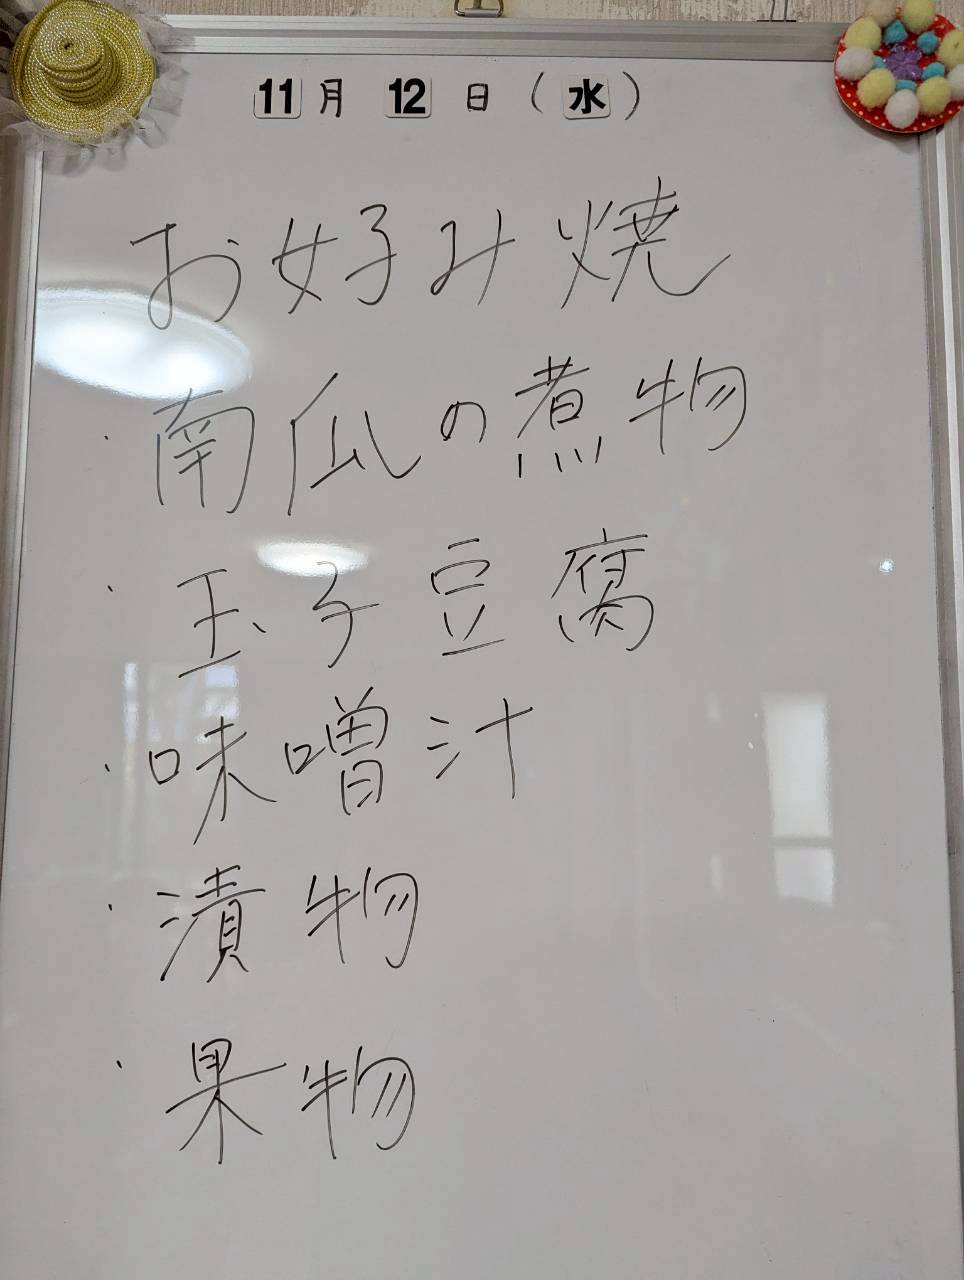 11月 12日(水)
お好み焼
・南瓜の煮物
・玉子豆腐
・味噌汁
・漬物
・果物